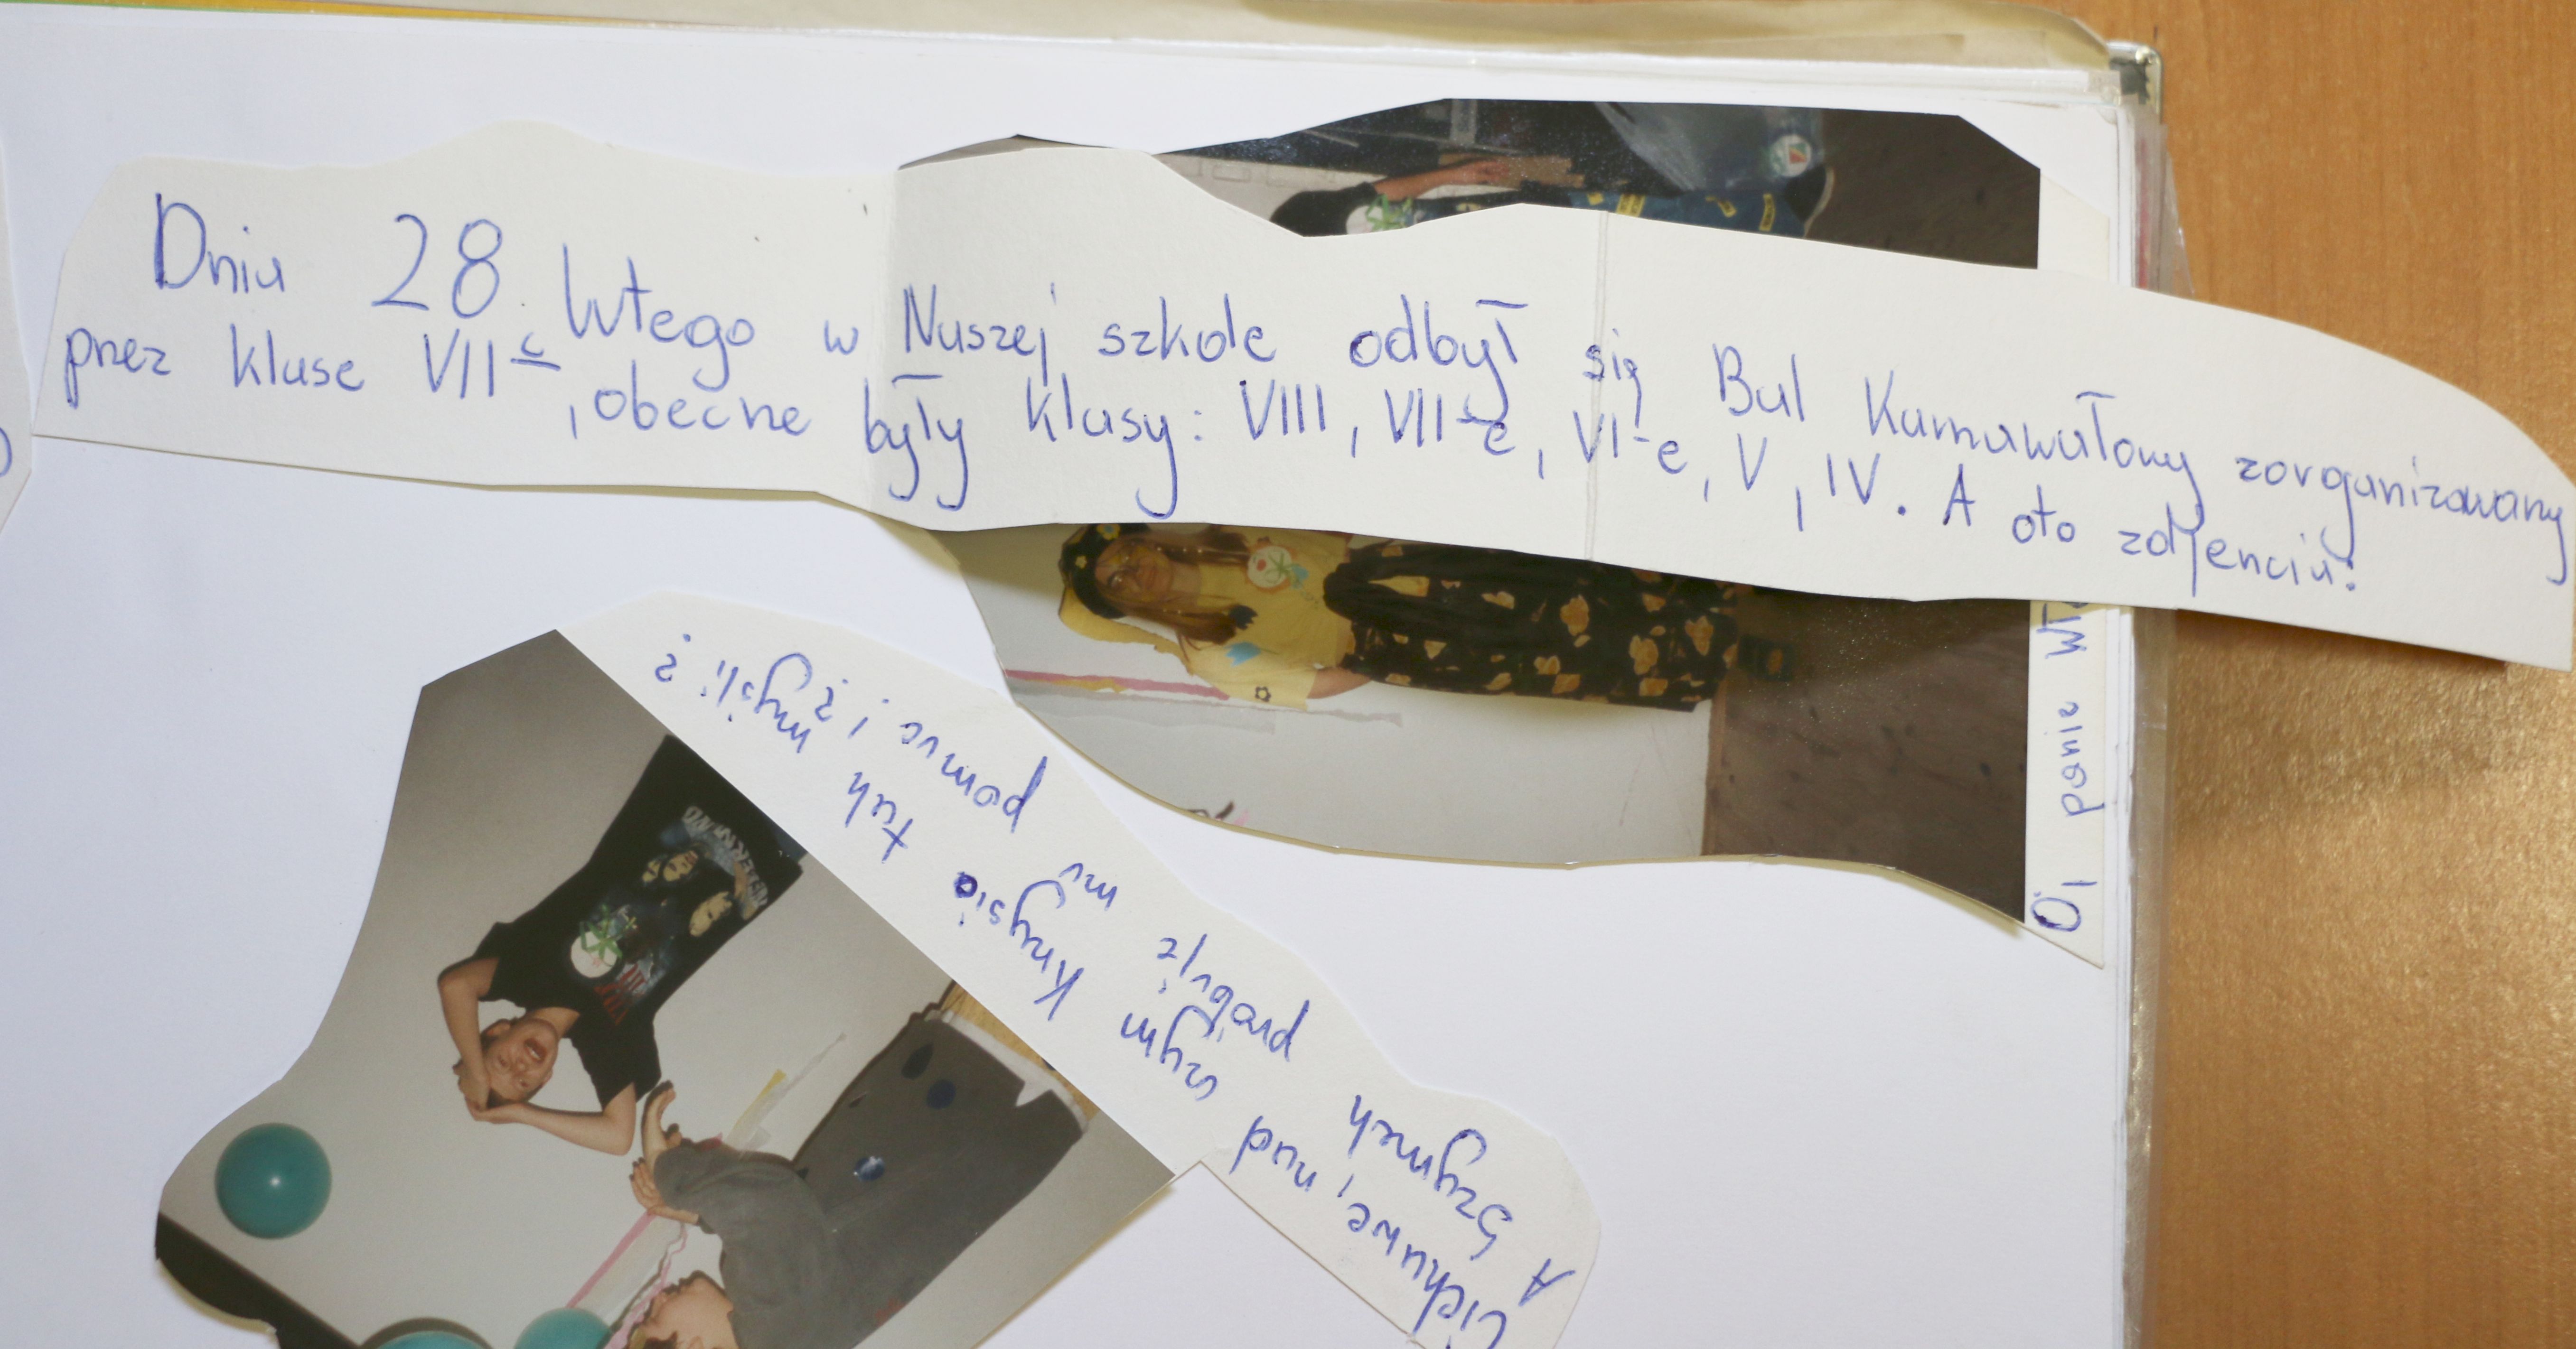 Dniu 28 lutego w Naszej szkole odbył się Bal Karnawałowy zorganizowany
przez klase VII c, obecne były klasy: VIII, VII-e, VI-e, V, IV. A oto zdjencia:
Oj panie
Ciekawe, nad czym Krzysio tak myśli?
A Szymek próbuje mu pomuc i ?
NEVERMIND